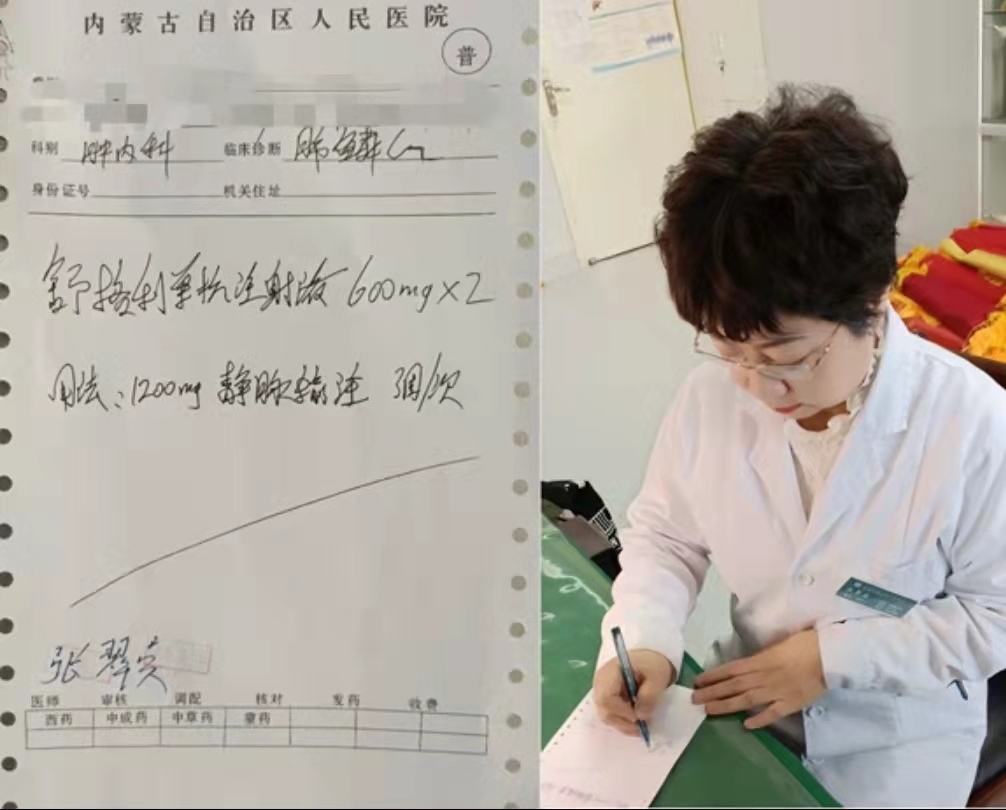 内蒙古自治区人民医院
普
科别 肿内科 临床诊断 肺鳞Ca
身份证号 机关住址
舒格利单抗注射液 600mg×2
用法:1200mg 静脉输注 3周/次
张翠英
医师 审核 调配 核对 发药 收费
西药 中成药 中草药 蒙药